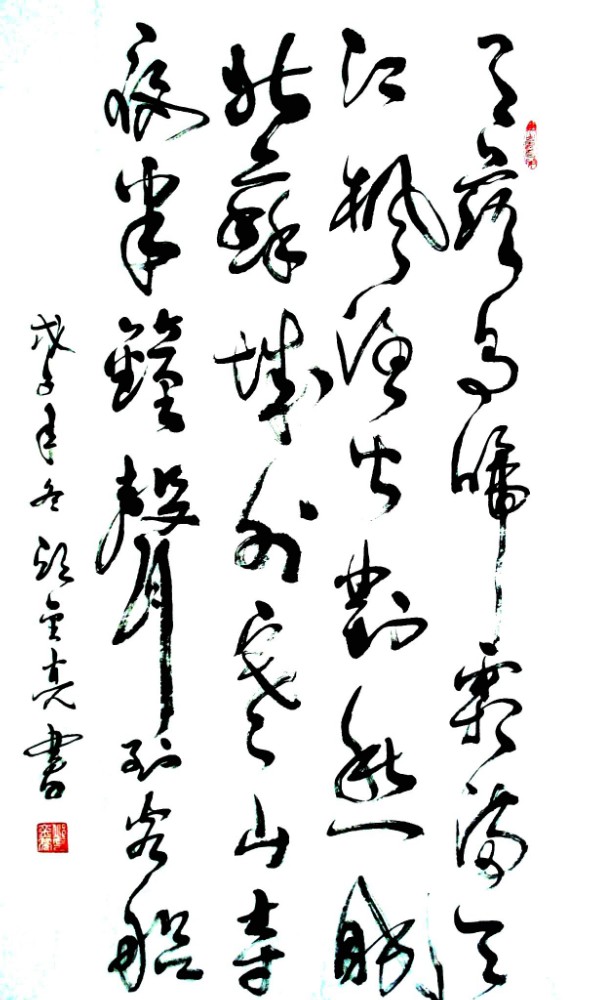 月落烏啼霜滿天
江楓漁火對愁眠
姑蘇城外寒山寺
夜半鐘聲到客船
戊子年冬 金亮書